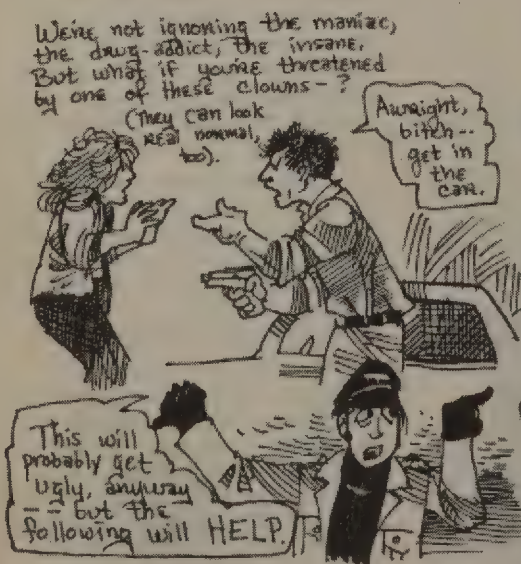 We're not ignoring the maniac,
the drug-addict, the insane.
But what if you're threatened
by one of these clowns-?
(They can look
real normal,
too).
Awright,
bitch--
get in
the
car.
This will
probably get
ugly, anyway
-- but the
following will HELP.